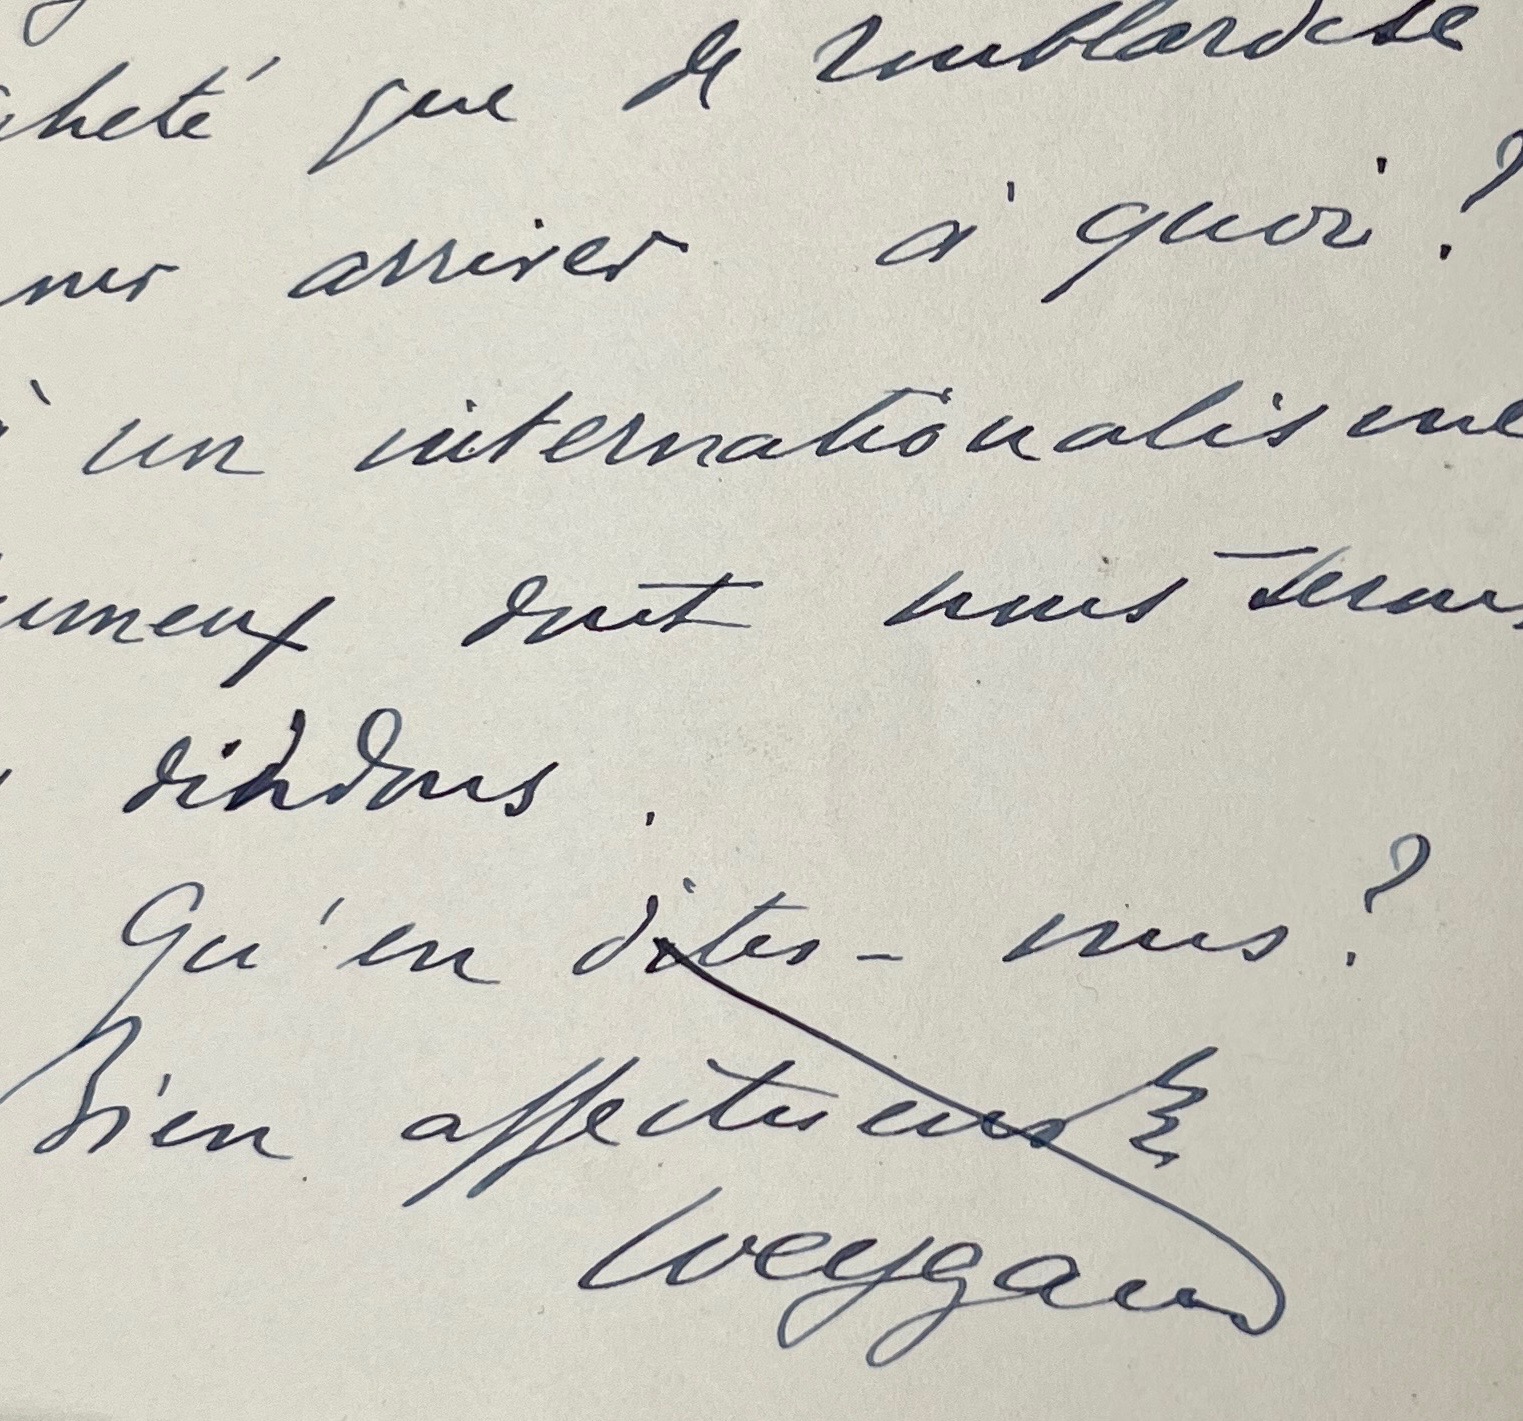 cheté que de roublardise
arriver à quoi ?
à un internationalisme
fumeux dont nous serons
dindons .
Qu'en dites-vous ?
Bien affectueux
Weygand